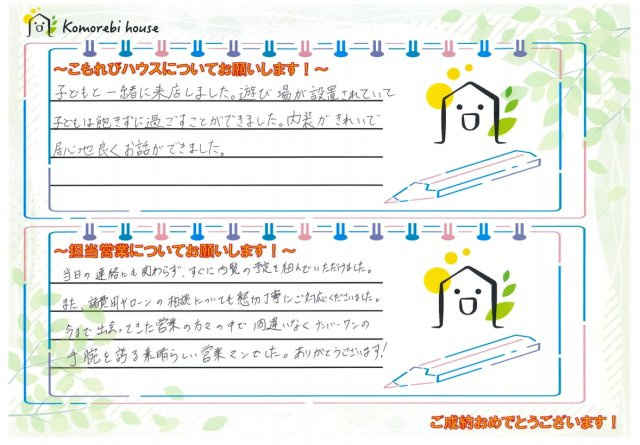 Komorebi house
～こもれびハウスについてお願いします！～
子どもと一緒に来店しました。遊び場が設置されていて
子どもは飽きずに過ごすことができました。内装がきれいで
居心地良くお話ができました。
～担当営業についてお願いします！～
当日の連絡にも関わらず、すぐに内覧の予定を組んでいただけました。
また、諸費用やローンの相談についても懇切丁寧にご対応くださいました。
今まで出会ってきた営業の方々の中で間違いなくナンバーワンの
手腕を誇る素晴らしい営業マンでした。ありがとうございます!
ご成約おめでとうございます！